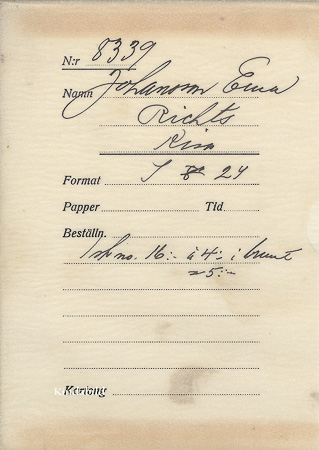 N:r 8339
Namn Johansson Erna
Richts
Kisa
Format 24
Papper Tid
Beställn.
16:- à 4:- i brunt
5:-
Kartong